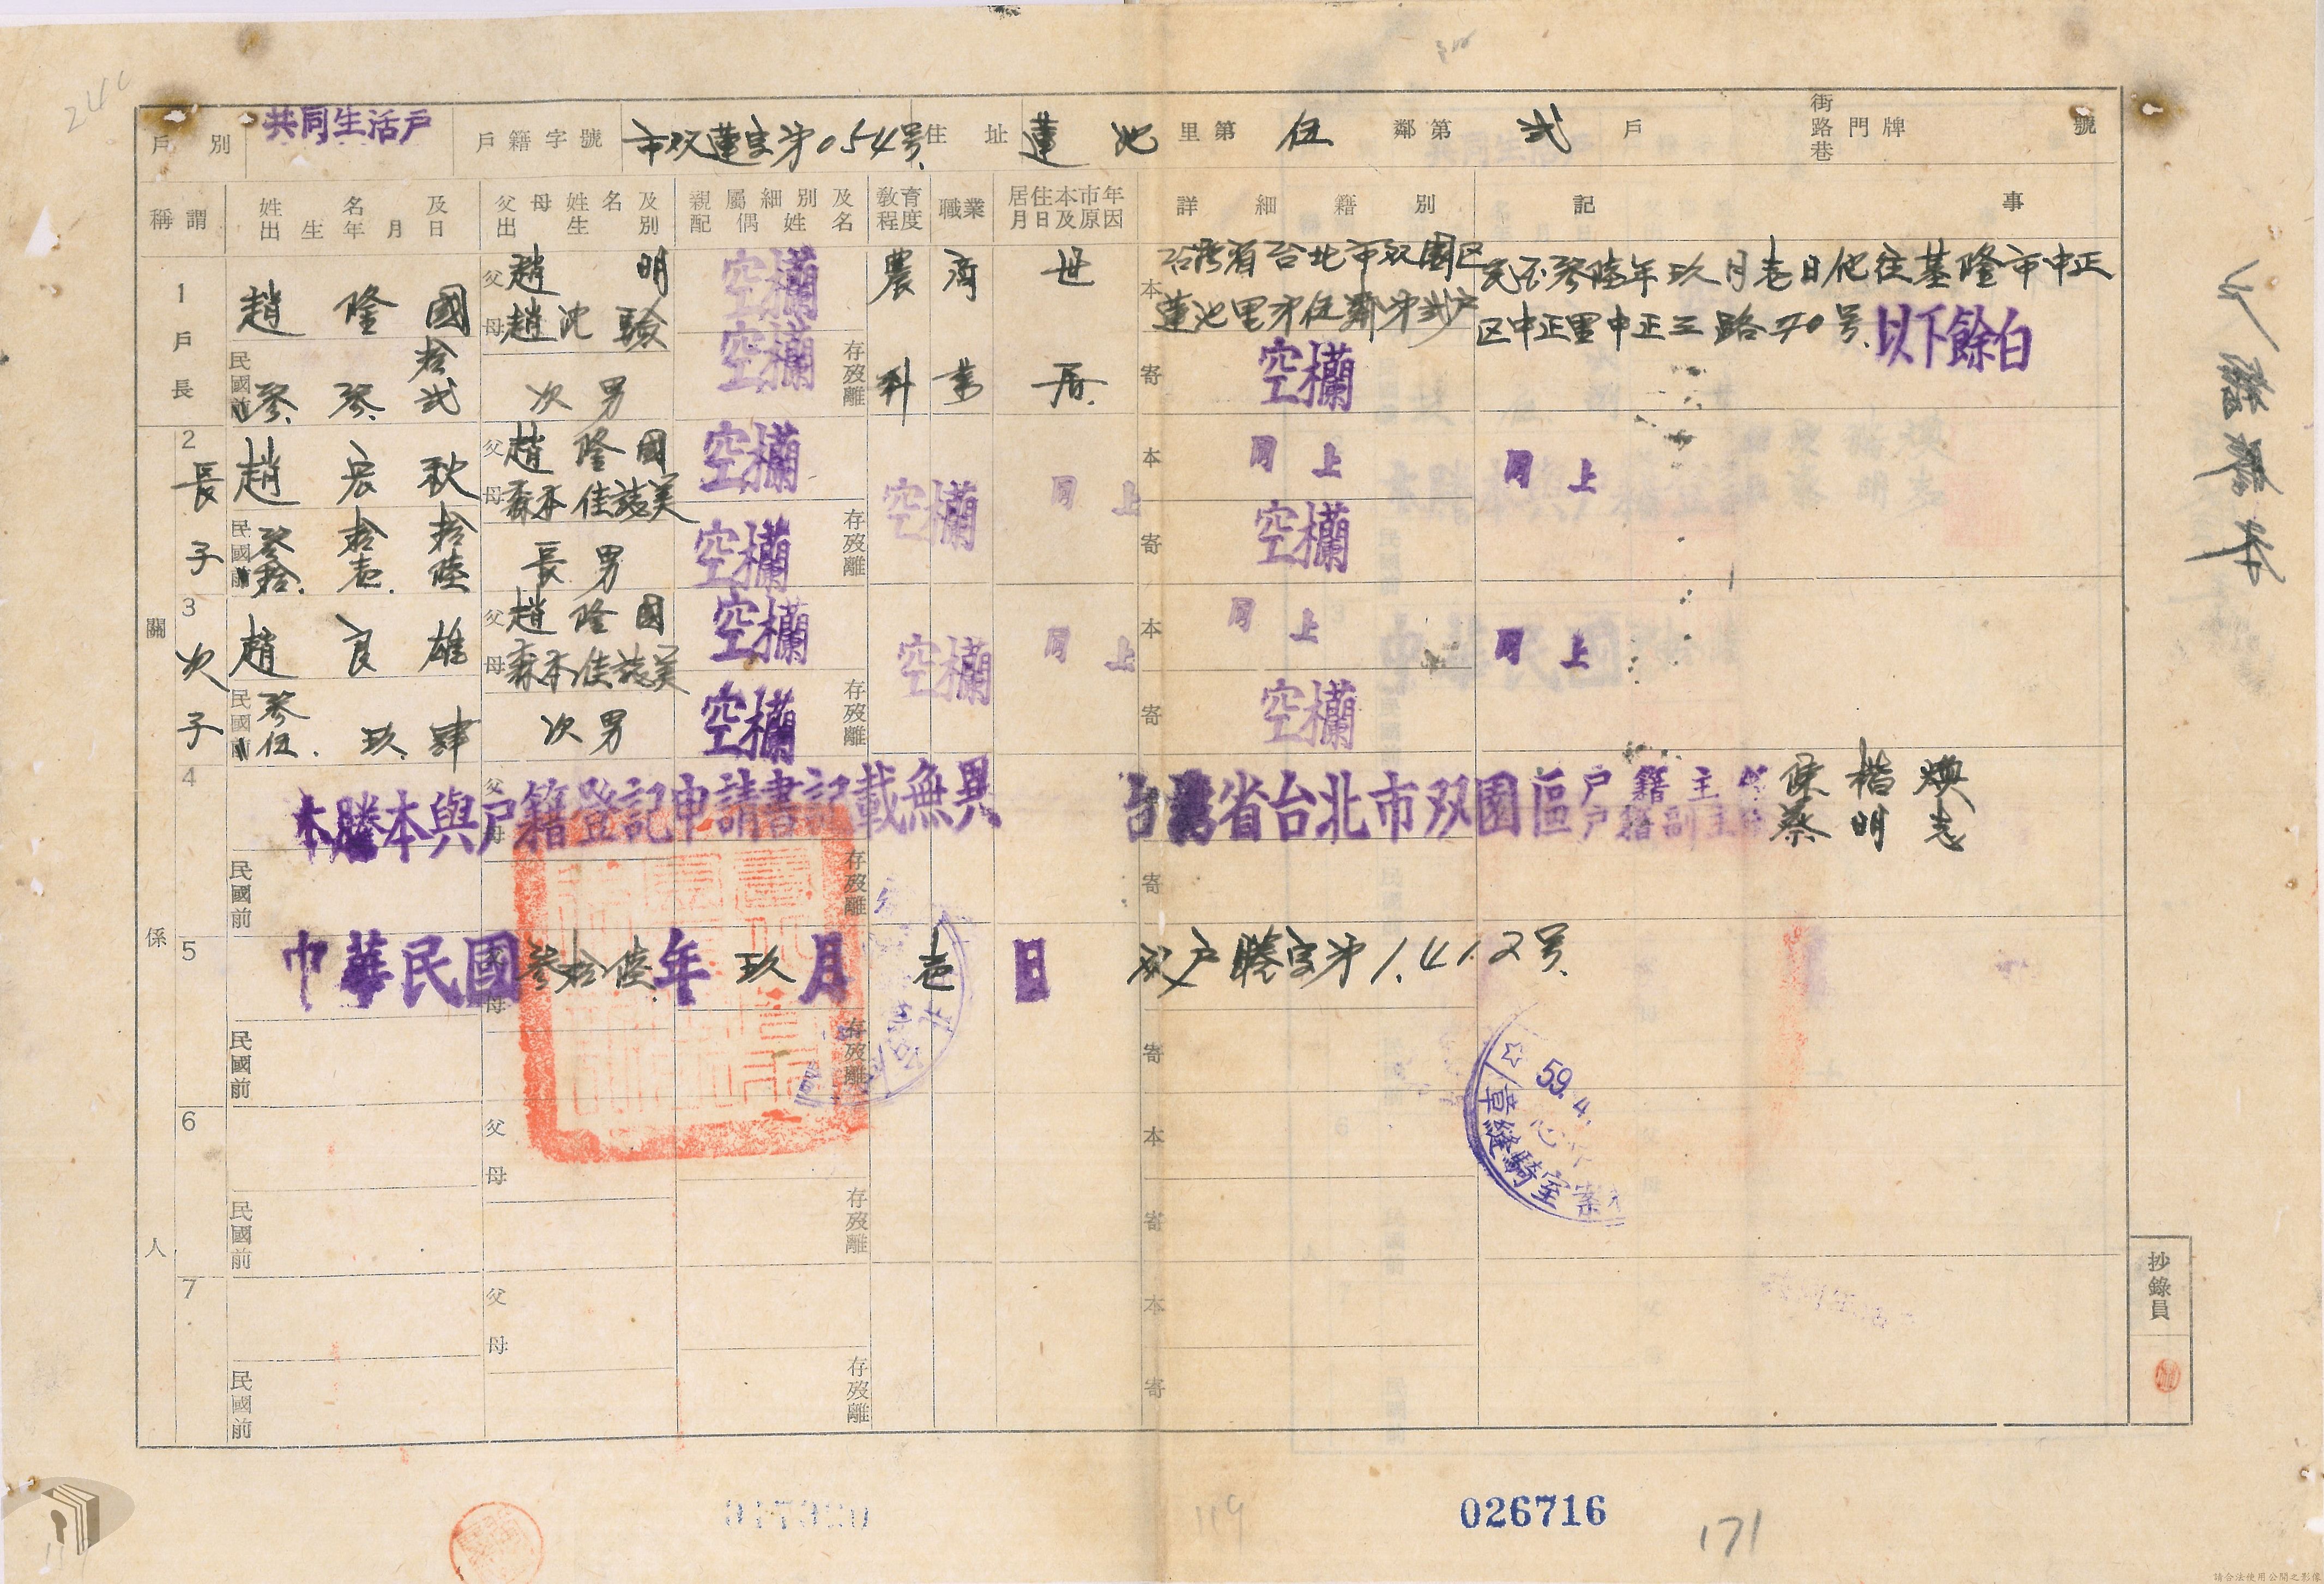 戶別 共同生活戶 戶籍字號 市双蓮字第054号 住址 蓮池里第伍鄰第弍戶 街路巷 門牌 號
稱謂 姓名及出生年月日 父母姓名及出生別 親屬細別及配偶姓名 教育程度 職業 居住本市年月日及原因 詳細籍別 記事
1 戶長 趙隆國
民國前 參 參 拾弍
父 趙明
母 趙沈驗
次男
空欄
空欄
存歿離
農科
商業
世居
本 台灣省台北市双園区
蓮池里第伍鄰第弍戶
寄 空欄
民國參陸年玖月壱日他往基隆市中正
区中正里中正三路70号
以下餘白
關係人
2 長子 趙宏秋
民國前 參拾 拾壱 拾陸
父 趙隆國
母 森本佳誌美
長男
空欄
空欄
存歿離
空欄
同上
本 同上
寄 空欄
同上
3 次子 趙良雄
民國前 參伍 玖 肆
父 趙隆國
母 森本佳誌美
次男
空欄
空欄
存歿離
空欄
同上
本 同上
寄 空欄
同上
4 父 母
本謄本與戶籍登記申請書記載無異
台灣省台北市双園區戶籍主任
戶籍副主任
蔡明志
民國前 存歿離 寄
5 母
中華民國參拾陸年玖月壱日
双戶謄字第1.412号
民國前 存歿離 寄
59.4.
章縫騎室案
6 父 母 本
民國前 存歿離 寄
7 父 母 本
民國前 存歿離 寄
抄錄員
026716
119
171
請合法使用公開之影像